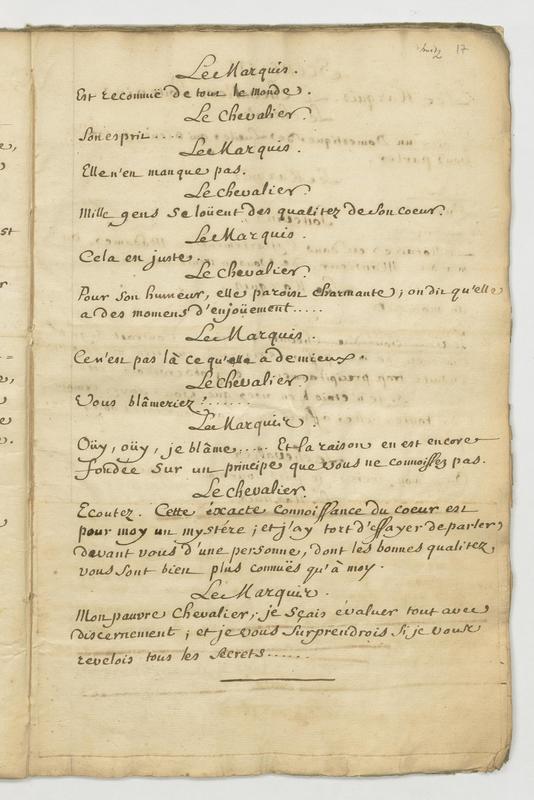 17
Le Marquis.
Est reconnuë de tout le monde.
Le Chevalier.
Son esprit....
Le Marquis.
Elle n'en manque pas.
Le Chevalier.
Mille gens se loüent des qualitez de son coeur.
Le Marquis.
Cela est juste.
Le Chevalier.
Pour son humeur, elle paroist charmante; on dit qu'elle
a des momens d'enjoüement.....
Le Marquis.
Ce n'est pas là ce qu'elle a de mieux.
Le Chevalier.
Vous blâmeriez?.......
Le Marquis.
Oüy, oüy, je blâme..... Et la raison en est encore
fondée sur un principe que vous ne connoissez pas.
Le Chevalier.
Ecoutez. Cette éxacte connoissance du coeur est
pour moy un mystére; et j'ay tort d'essayer de parler
devant vous d'une personne, dont les bonnes qualitez
vous sont bien plus connuës qu'à moy.
Le Marquis.
Mon pauvre Chevalier, je sçais évaluer tout avec
discernement; et je vous surprendrois si je vous
revelois tous les secrets......